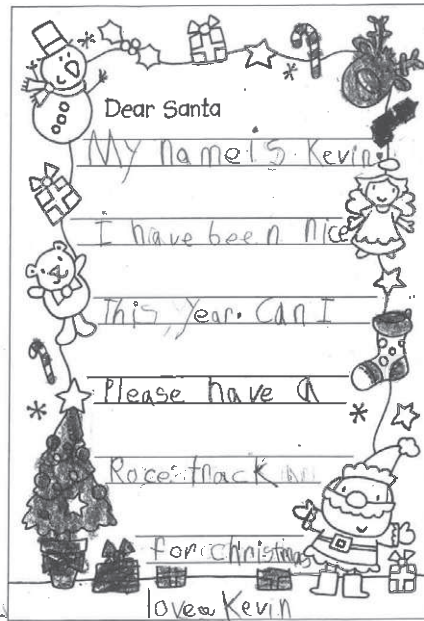 Dear Santa
My name is Kevin.
I have been nice
This year. Can I
Please have a
Race track
for christmas
love Kevin